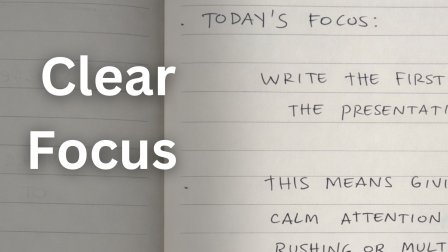 Clear
Focus
. TODAY'S FOCUS:
WRITE THE FIRST
THE PRESENTATI
THIS MEANS GIVI
CALM ATTENTION
RUSHING OR MULT